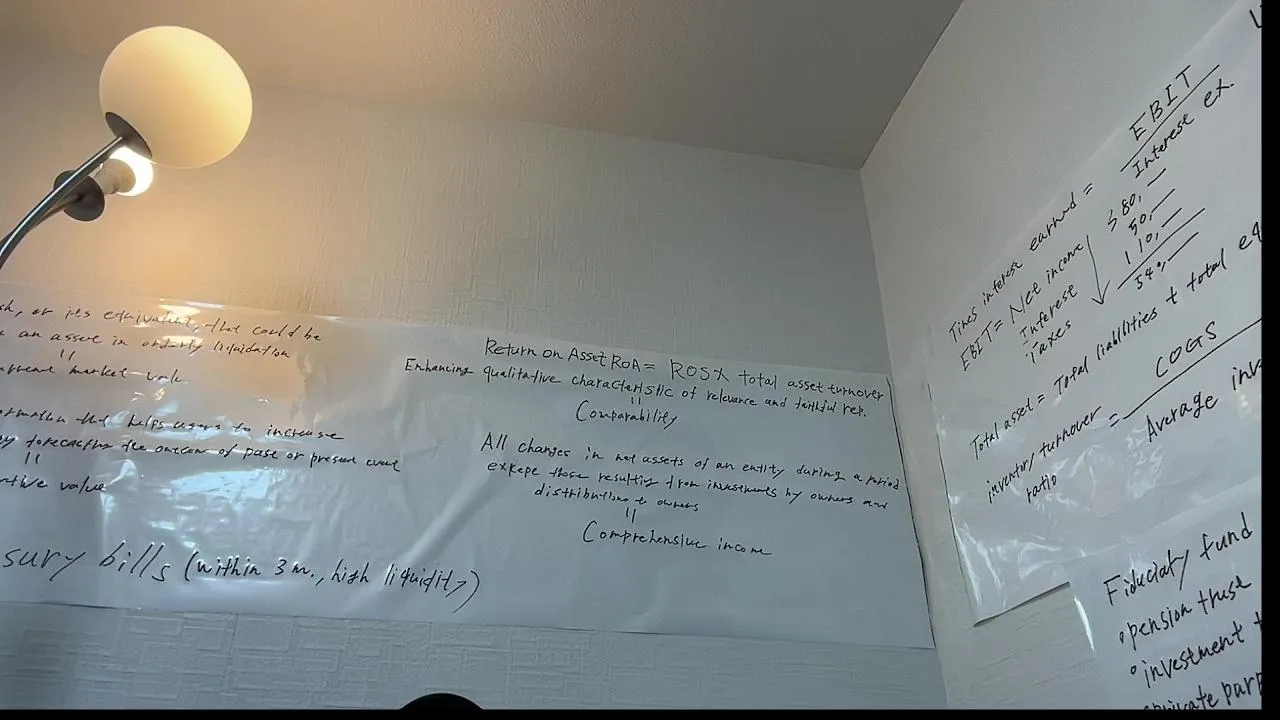 or its equivalent, that could be
an asset in orderly liquidation
"
market valu
that helps users to increase
forecasting the outcome of past or present event
"
tive value
sury bills (within 3 m., high liquidity)
Return on Asset ROA = ROS x total asset turnover
Enhancing qualitative characteristic of relevance and faithful rep.
"
Comparability
All changes in net assets of an entity during a period
those resulting from investments by owners and
distributions owners
"
Comprehensive income
Times interest earned = EBIT
Interest ex.
EBIT = Net income
interest
Taxes
80,—
50,—
10,—
540,—
Total asset = Total liabilities + total eq
inventory turnover = COGS
ratio
Average inv
Fiduciary fund
• pension trust
• investment t
private purp